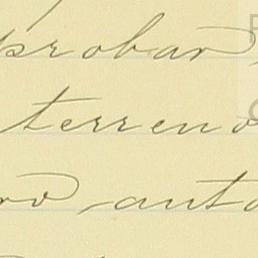 probar
terreno
ro anto